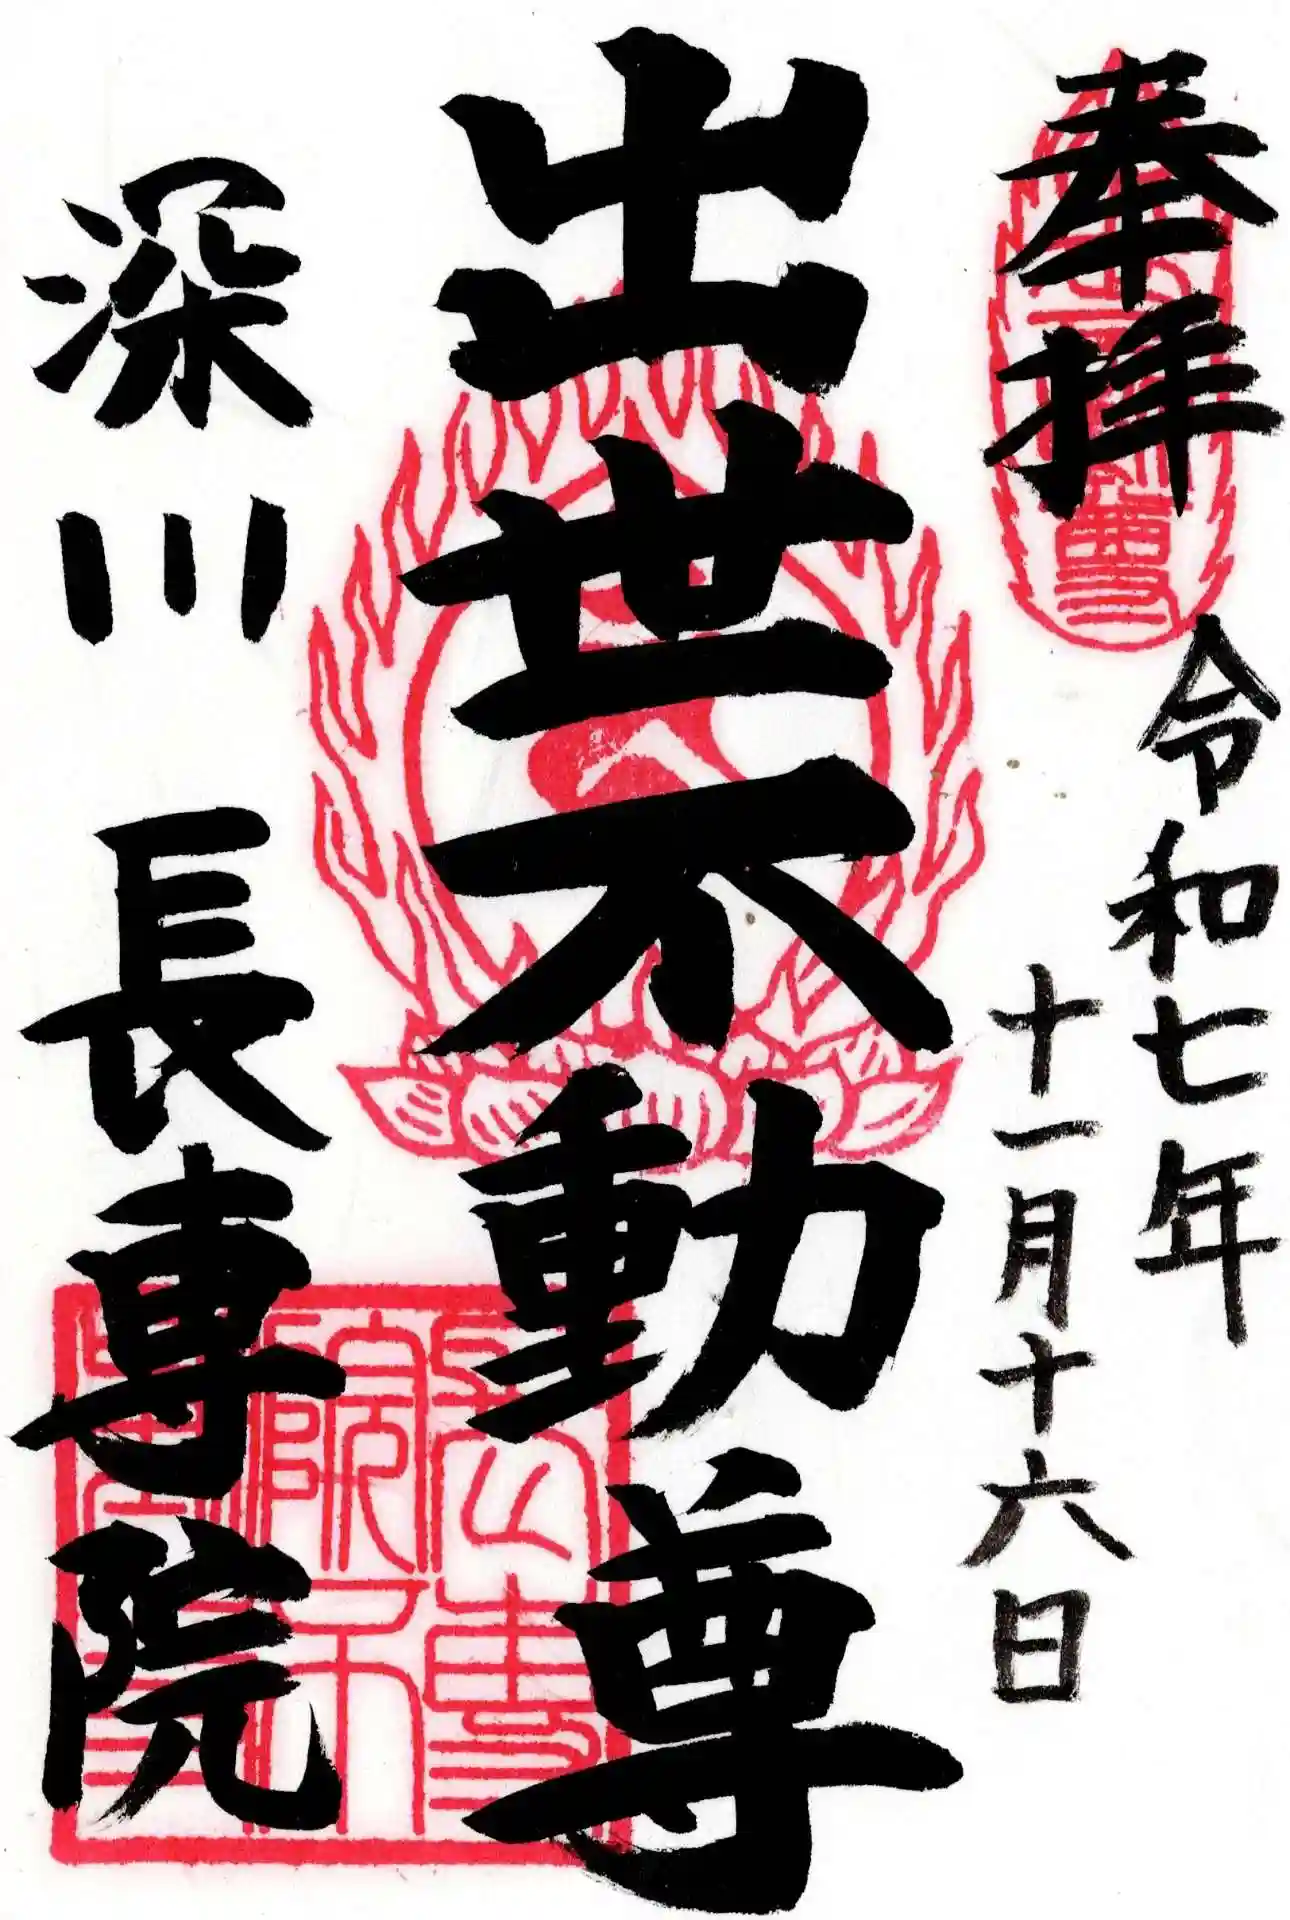 奉拝
令和七年
十一月十六日
出世不動尊
深川 長専院